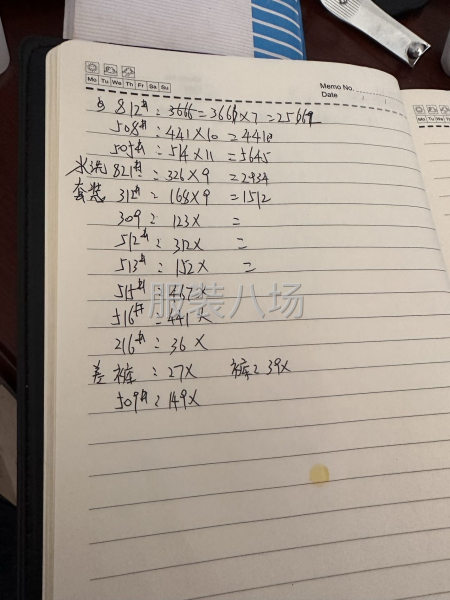 Mo Tu We Th Fr Sa Su
Memo No.
Date
812#: 3666 = 3666×7 = 25662
508#: 441×10 = 4410
505#: 514×11 = 5645
水洗 821#: 326×9 = 2934
套装 312#: 168×9 = 1512
309: 123× =
512#: 312× =
513#: 152× =
515#: 467×
516#: 441×
216#: 36×
差裤: 27× 裤: 39×
509#: 149×
服装八场